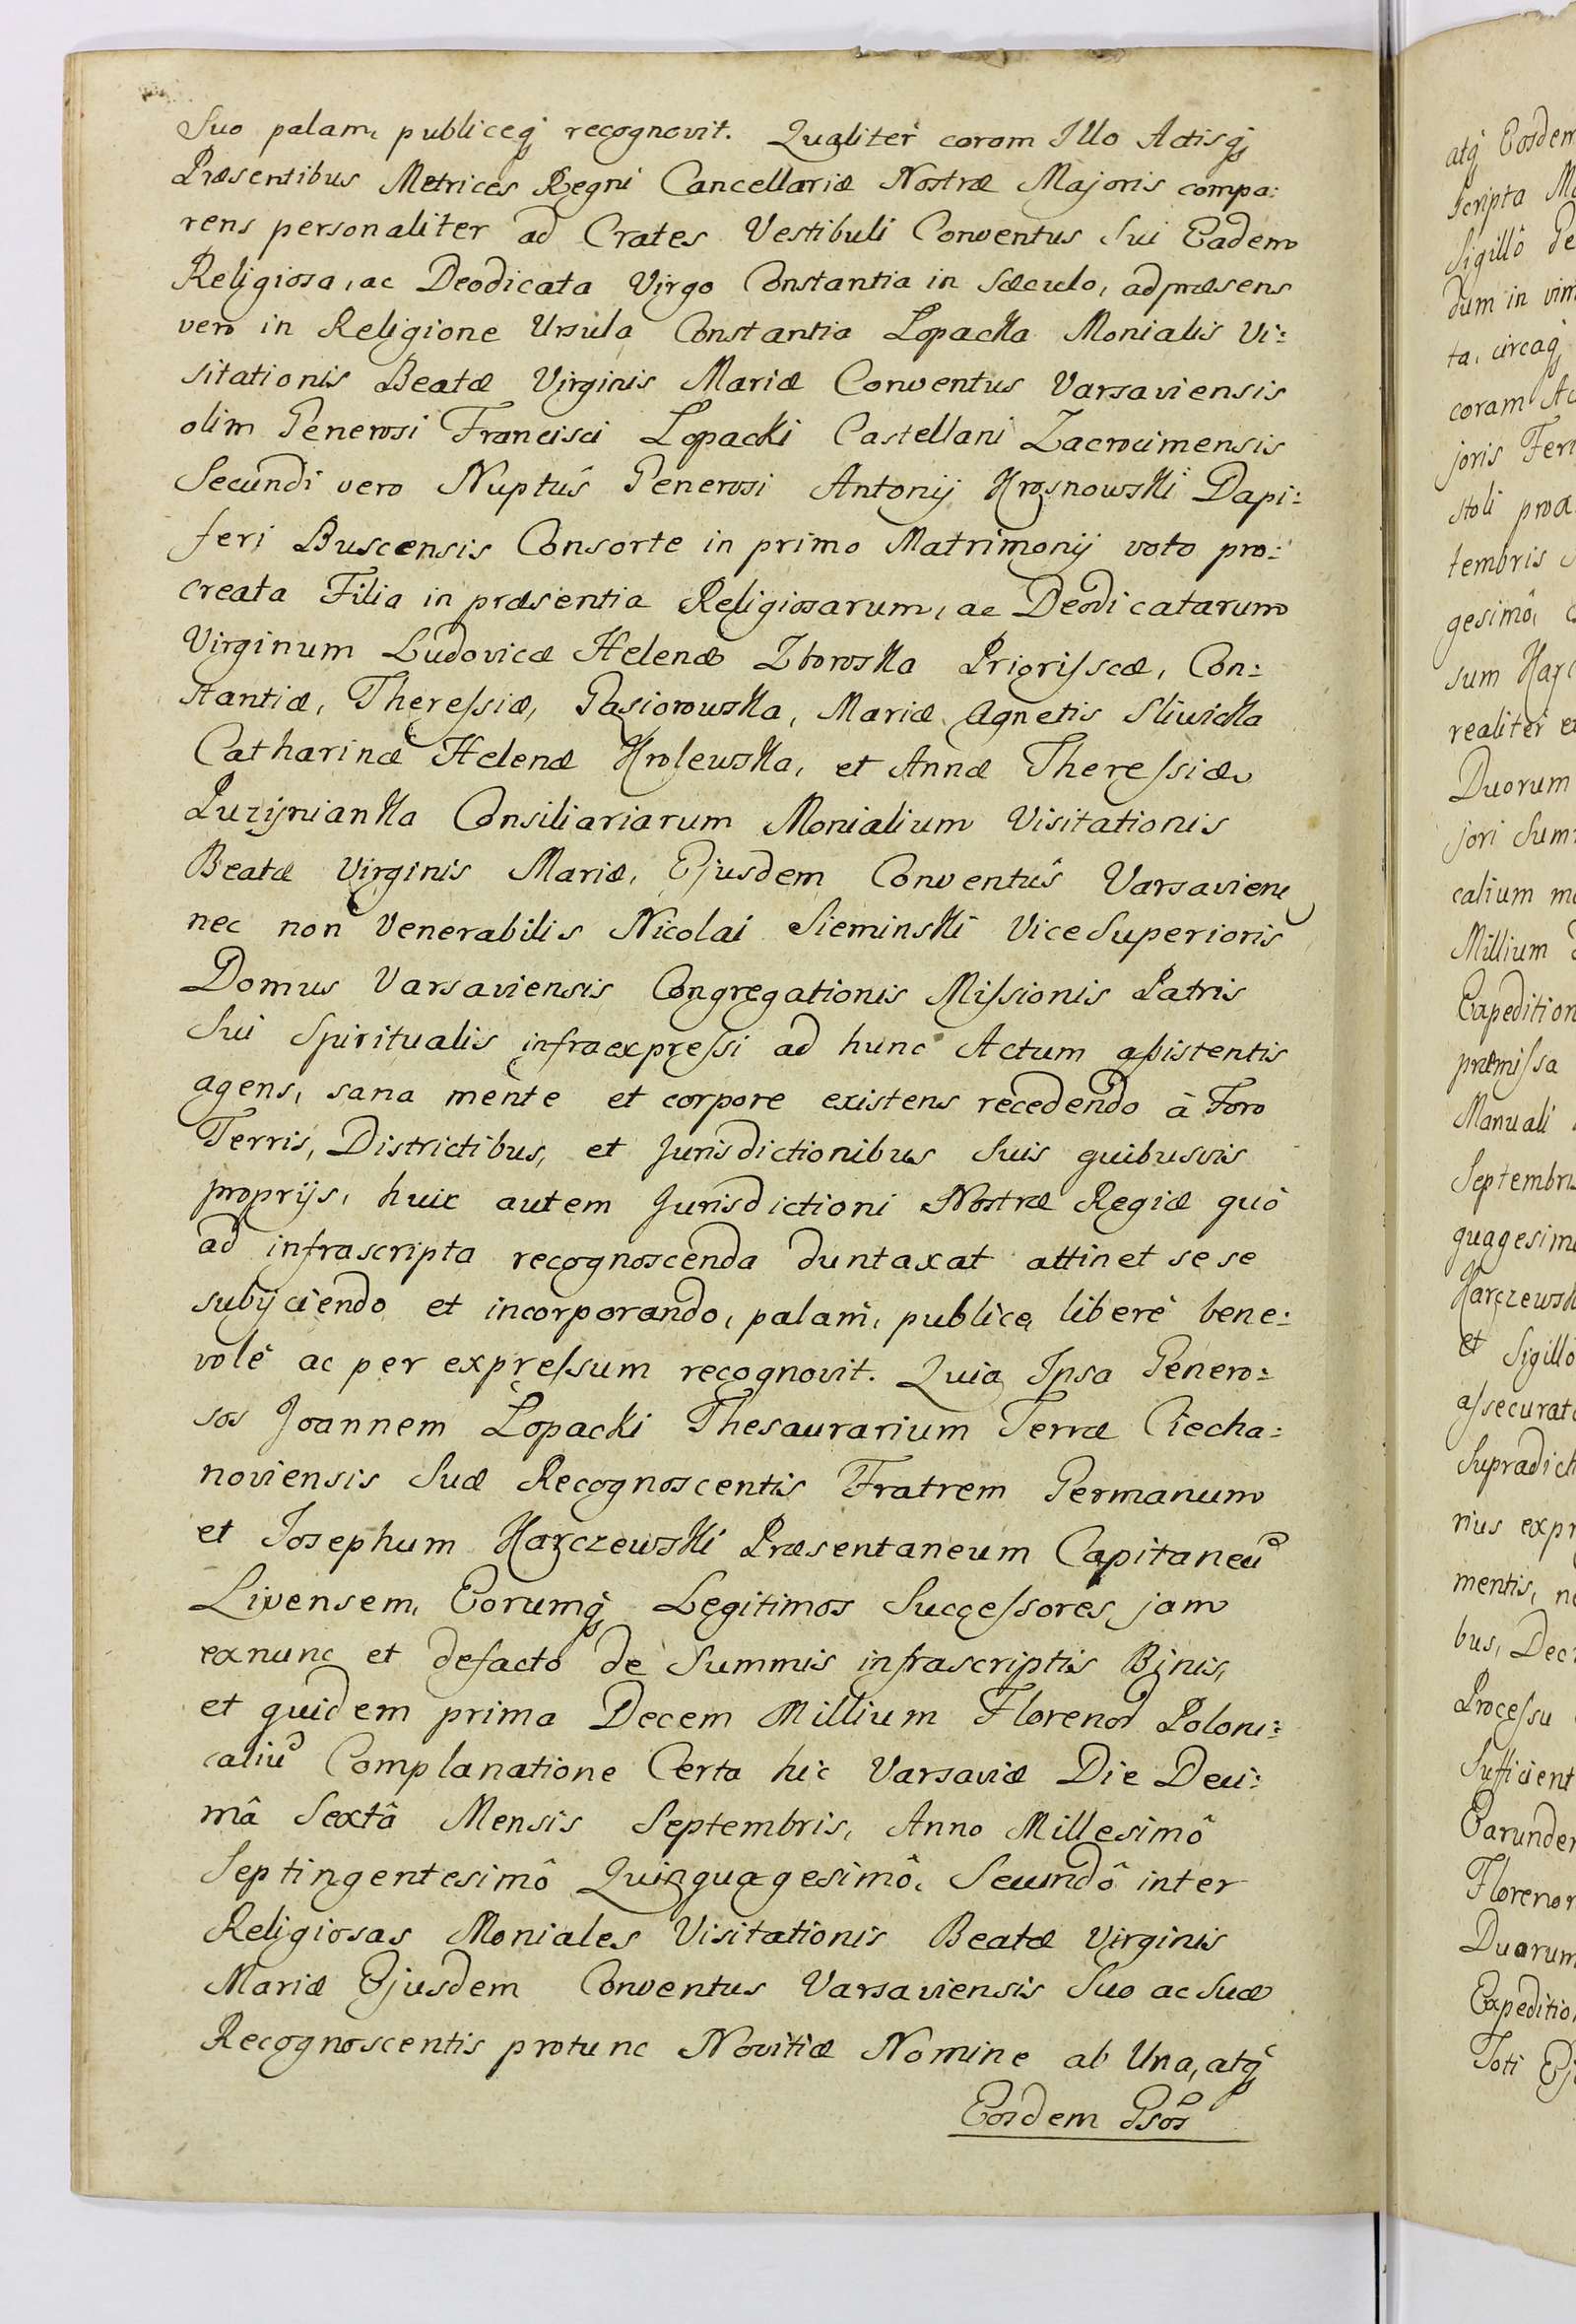 Suo palam, publiceq recognovit. Qualiter coram Illo Actisq
Præsentibus Metrices Regni Cancellariæ Nostræ Majoris compa:
rens personaliter ad Crates Vestibuli Conventus Sui Eadem
Religiosa, ac Deodicata Virgo Constantia in Sæculo, adpræsens
vero in Religione Ursula Constantia Lopacka Monialis Vi:
sitationis Beatæ Virginis Mariæ Conventus Varsaviensis
olim Generosi Francisci Lopacki Castellani Zacrocimensis
Secundi vero Nuptûs Generosi Antonij Krosnowski Dapi:
feri Buscensis Consorte in primo Matrimonij voto pro:
creata Filia in præsentia Religiosarum, ac Deodicatarum
Virginum Ludovicæ Helenæ Zboroska Priorissæ, Con:
stantiæ, Theressiæ, Gasiorowska, Mariæ Agnetis Sliwicka
Catharinæ Helenæ Krolewska, et Annæ Theressiæ
Puzynianka Consiliariarum Monialium Visitationis
Beatæ Virginis Mariæ, Ejusdem Conventûs Varsavien
nec non Venerabilis Nicolai Sieminski ViceSuperioris
Domus Varsaviensis Congregationis Missionis Patris
Sui Spiritualis infraexpressi ad hunc Actum assistentis
agens, sana mente et corpore existens recedendo à Foro
Terris, Districtibus, et Jurisdictionibus Suis quibusvis
proprijs, huic autem Jurisdictioni Nostræ Regiæ quò
ad infrascripta recognoscenda duntaxat attinet se se
subijciendo et incorporando, palam, publice, liberè bene:
volè ac per expressum recognovit. Quia Ipsa Genero:
sos Joannem Lopacki Thesaurarium Terræ Ciecha:
noviensis Suæ Recognoscentis Fratrem Germanum
et Josephum Karczewski Præsentaneum Capitaneu
Livensem, Eorumq Legitimos Successores jam
exnunc et defacto de Summis infrascriptis Binis,
et quidem prima Decem Millium Florenor Poloni:
caliu Complanatione Certa hic Varsaviæ Die Deci:
mâ Sextâ Mensis Septembris, Anno Millesimô
Septingentesimô Quinquagesimô Secundô inter
Religiosas Moniales Visitationis Beatæ Virginis
Mariæ Ejusdem Conventus Varsaviensis Suo ac Suæ
Recognoscentis protunc Novitiæ Nomine ab Una, atq
Eosdem Gsos
atq Eosdem
scripta
Sigillô
dum in vim
ta, circaq
coram
joris
stoli
tembris
gesimô,
sum
realiter
Duorum
jori
calium
Millium
Expedition
præmissa
Manuali
Septembris
quagesim
Karczewsk
et Sigillo
assecurat
Supradict
rius expr
mentis,
bus,
Processu
Sufficient
Earunde
Floreno
Duorum
Expeditio
Toti